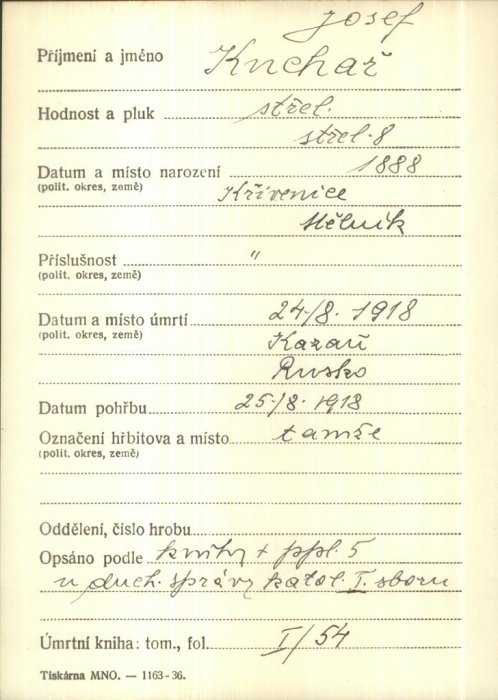 Josef
Příjmení a jméno Kuchař
Hodnost a pluk střel.
střel. 8
Datum a místo narození 1888
(polit. okres, země) Křivenice
Mělník
Příslušnost "
(polit. okres, země)
Datum a místo úmrtí 24./8. 1918
(polit. okres, země) Kazaň
Rusko
Datum pohřbu 25./8. 1918
Označení hřbitova a místo tamže
(polit. okres, země)
Oddělení, číslo hrobu
Opsáno podle knihy + ppl. 5
u duch. správy katol. I. sboru
Úmrtní kniha: tom., fol. I/54
Tiskárna MNO. — 1163-36.